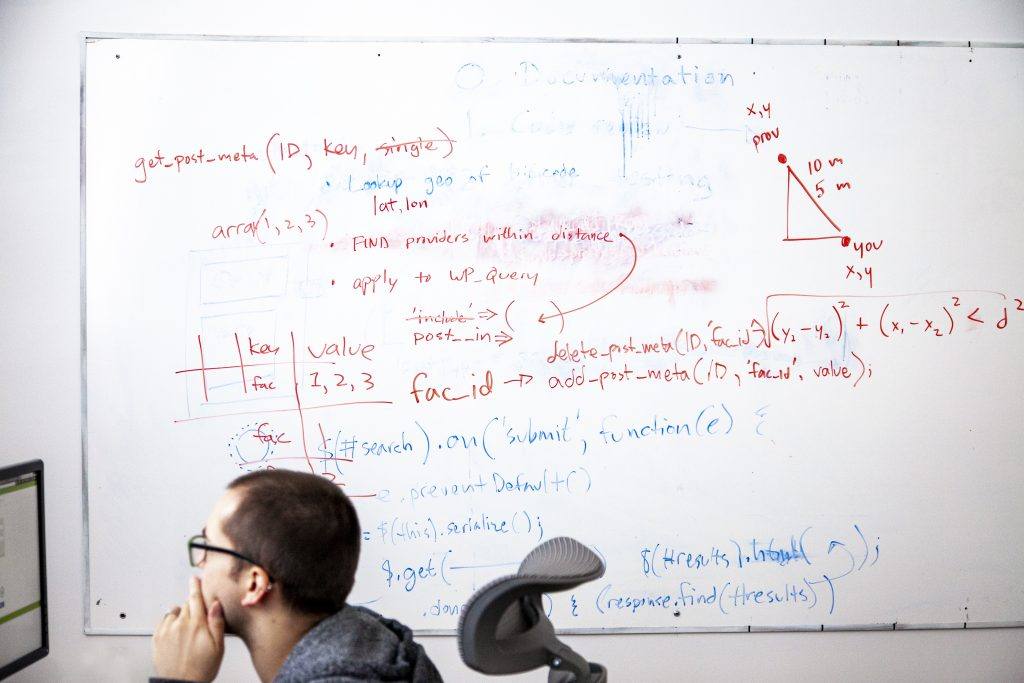 O. Documentation
1. Code review
x,y
prov
10 m
5 m
you
x,y
get_post_meta (ID, key, single)
• Lookup geo of
lat, lon
array(1,2,3)
• FIND providers within distance
• apply to WP_Query
'include' => ( )
post__in =>
key value
fac 1, 2, 3
delete_post_meta(ID, 'fac_id')
√(y₂-y₂)² + (x₁-x₂)² < d²
fac_id → add_post_meta(ID, 'fac_id', value);
fac 1
2
$(#search).on('submit', function(e) {
e.preventDefault()
= $(this).serialize();
$.get(
$(#results).html( );
.done ) { (response.find(#results))